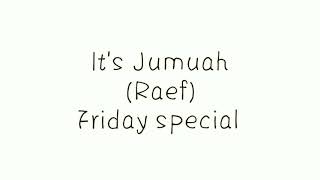 It's Jumuah
(Raef)
Friday special